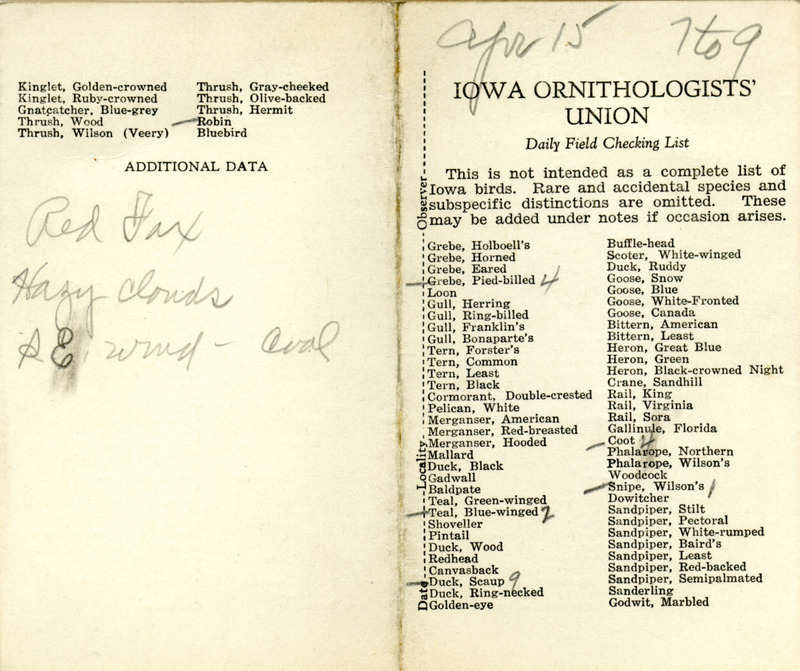 Kinglet, Golden-crowned
Kinglet, Ruby-crowned
Gnatcatcher, Blue-grey
Thrush, Wood
Thrush, Wilson (Veery)
Thrush, Gray-cheeked
Thrush, Olive-backed
Thrush, Hermit
Robin
Bluebird
ADDITIONAL DATA
Red Fox
Hazy clouds
S E. wind - Cool
Apr 15 7 to 9
IOWA ORNITHOLOGISTS'
UNION
Daily Field Checking List
This is not intended as a complete list of
Iowa birds. Rare and accidental species and
subspecific distinctions are omitted. These
may be added under notes if occasion arises.
Date Locality Observer
Grebe, Holboell's
Grebe, Horned
Grebe, Eared
Grebe, Pied-billed 4
Loon
Gull, Herring
Gull, Ring-billed
Gull, Franklin's
Gull, Bonaparte's
Tern, Forster's
Tern, Common
Tern, Least
Tern, Black
Cormorant, Double-crested
Pelican, White
Merganser, American
Merganser, Red-breasted
Merganser, Hooded
Mallard
Duck, Black
Gadwall
Baldpate
Teal, Green-winged
Teal, Blue-winged 2
Shoveller
Pintail
Duck, Wood
Redhead
Canvasback
Duck, Scaup 9
Duck, Ring-necked
Golden-eye
Buffle-head
Scoter, White-winged
Duck, Ruddy
Goose, Snow
Goose, Blue
Goose, White-Fronted
Goose, Canada
Bittern, American
Bittern, Least
Heron, Great Blue
Heron, Green
Heron, Black-crowned Night
Crane, Sandhill
Rail, King
Rail, Virginia
Rail, Sora
Gallinule, Florida
Coot 4
Phalarope, Northern
Phalarope, Wilson's
Woodcock
Snipe, Wilson's 1
Dowitcher
Sandpiper, Stilt
Sandpiper, Pectoral
Sandpiper, White-rumped
Sandpiper, Baird's
Sandpiper, Least
Sandpiper, Red-backed
Sandpiper, Semipalmated
Sanderling
Godwit, Marbled